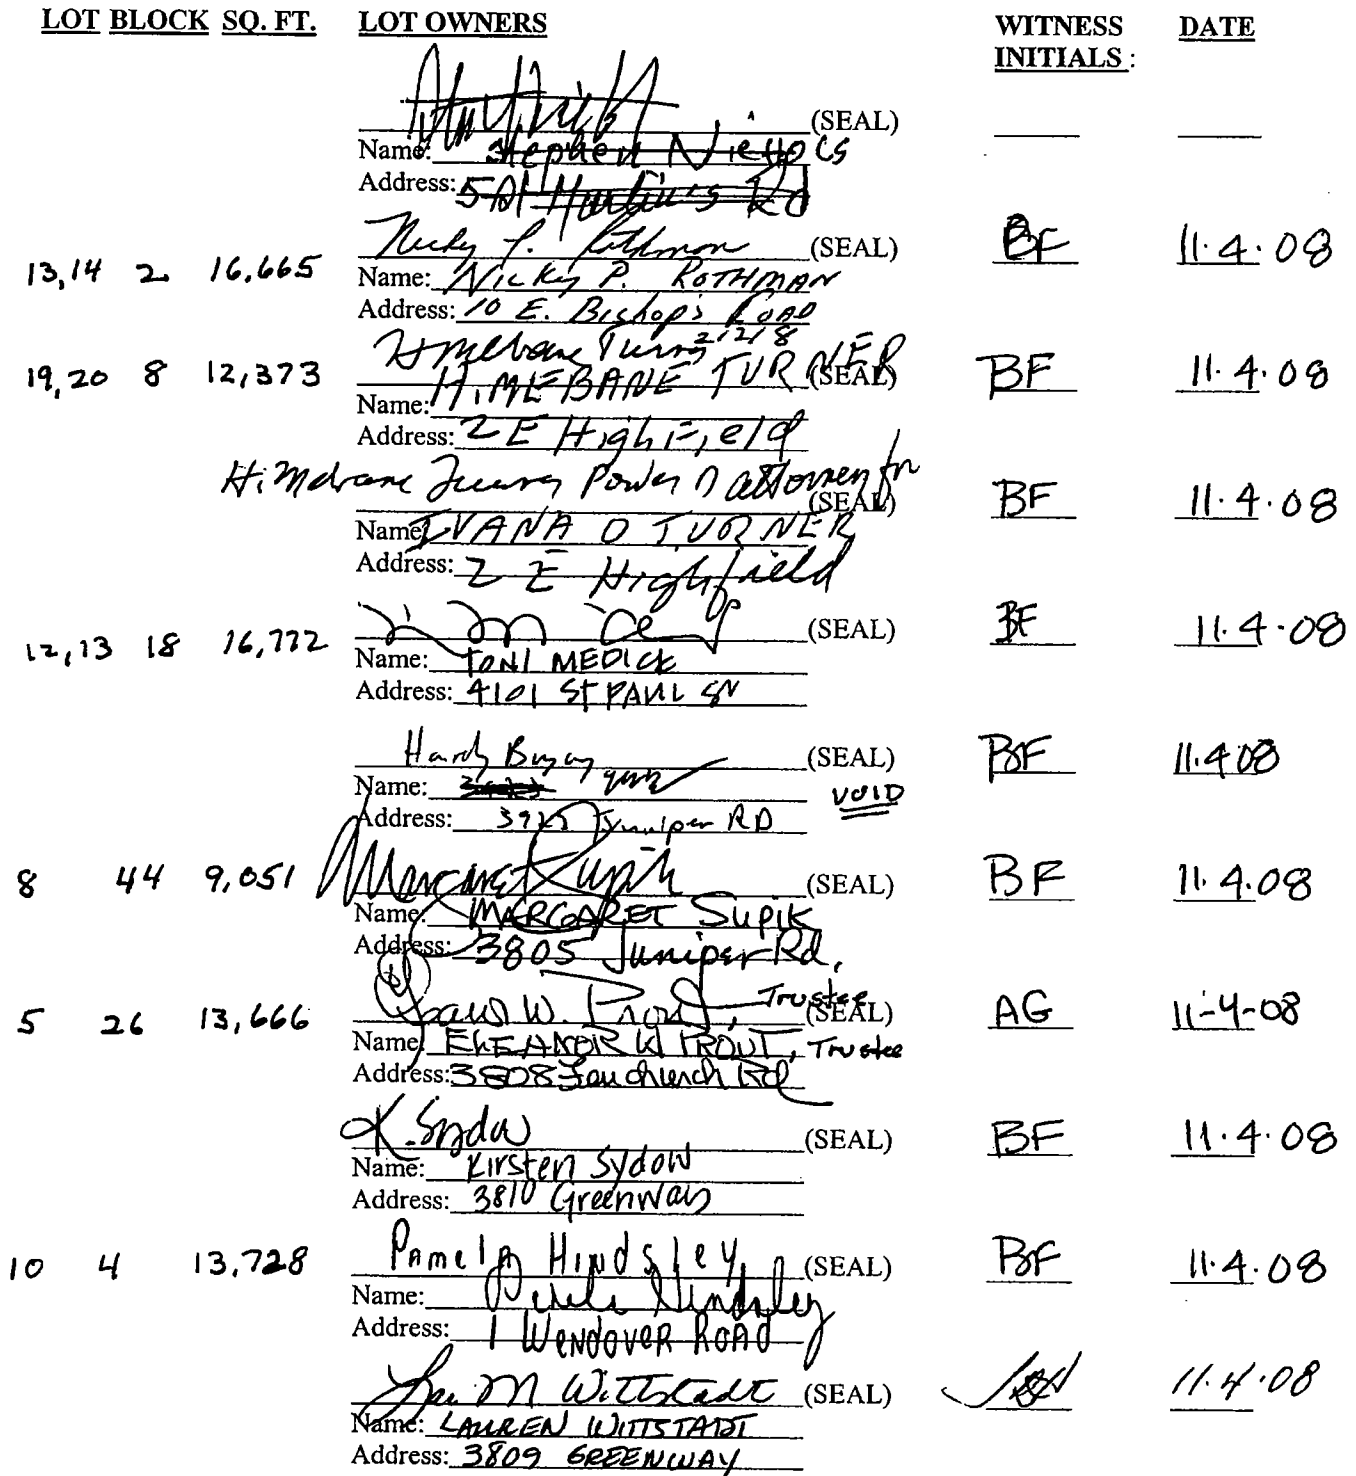 LOT BLOCK SQ. FT. LOT OWNERS WITNESS INITIALS : DATE
(SEAL)
Name: Stephen Nichols
Address: 5 St Martin's Rd
Nicky P. Rothman (SEAL) BF 11.4.08
13,14 2 16,665 Name: Nicky P. ROTHMAN
Address: 10 E. Bishop's ROAD
H Mebane Turner 2/2/8
19,20 8 12,373 H. MEBANE TURNER (SEAL) BF 11.4.08
Name:
Address: 2 E Highfield
H. Mebane Turner Power of attorney for
(SEAL) BF 11.4.08
Name: IVANA D TURNER
Address: 2 E Highfield
(SEAL) BF 11.4.08
12,13 18 16,772 Name: TONI MEDICK
Address: 4101 ST PAUL
(SEAL) BF 11.4.08
Name: VOID
Address: Juniper RD
8 44 9,051 Margaret Supik (SEAL) BF 11.4.08
Name: MARGARET Supik
Address: 3805 Juniper Rd.
5 26 13,666 W. Prout, Trustee (SEAL) AG 11-4-08
Name: ELEANOR W PROUT, Trustee
Address: 3808 Fenchurch Rd
K. Sydow (SEAL) BF 11.4.08
Name: Kirsten Sydow
Address: 3810 Greenway
10 4 13,728 Pamela Hindsley (SEAL) BF 11.4.08
Name: Pamela Hindsley
Address: 1 Wendover Road
M Wittstadt (SEAL) 11.4.08
Name: LAUREN WITTSTADT
Address: 3809 GREENWAY